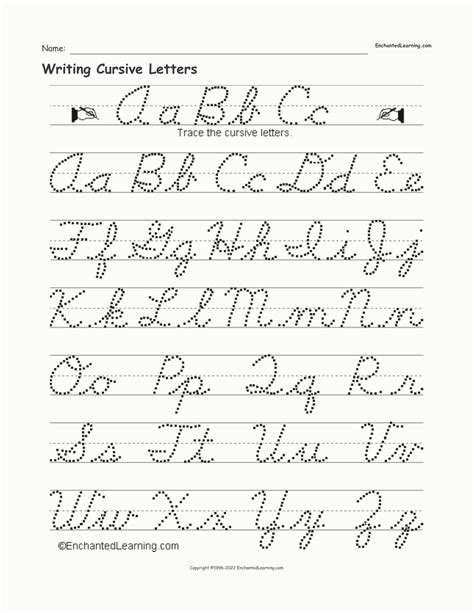 Name: EnchantedLearning.com
Writing Cursive Letters
Aa Bb Cc
Trace the cursive letters.
Aa Bb Cc Dd Ee
Ff Gg Hh Ii Jj
Kk Ll Mm Nn
Oo Pp Qq Rr
Ss Tt Uu Vv
Ww Xx Yy Zz
©EnchantedLearning.com
Copyright ©1996-2022 EnchantedLearning.com